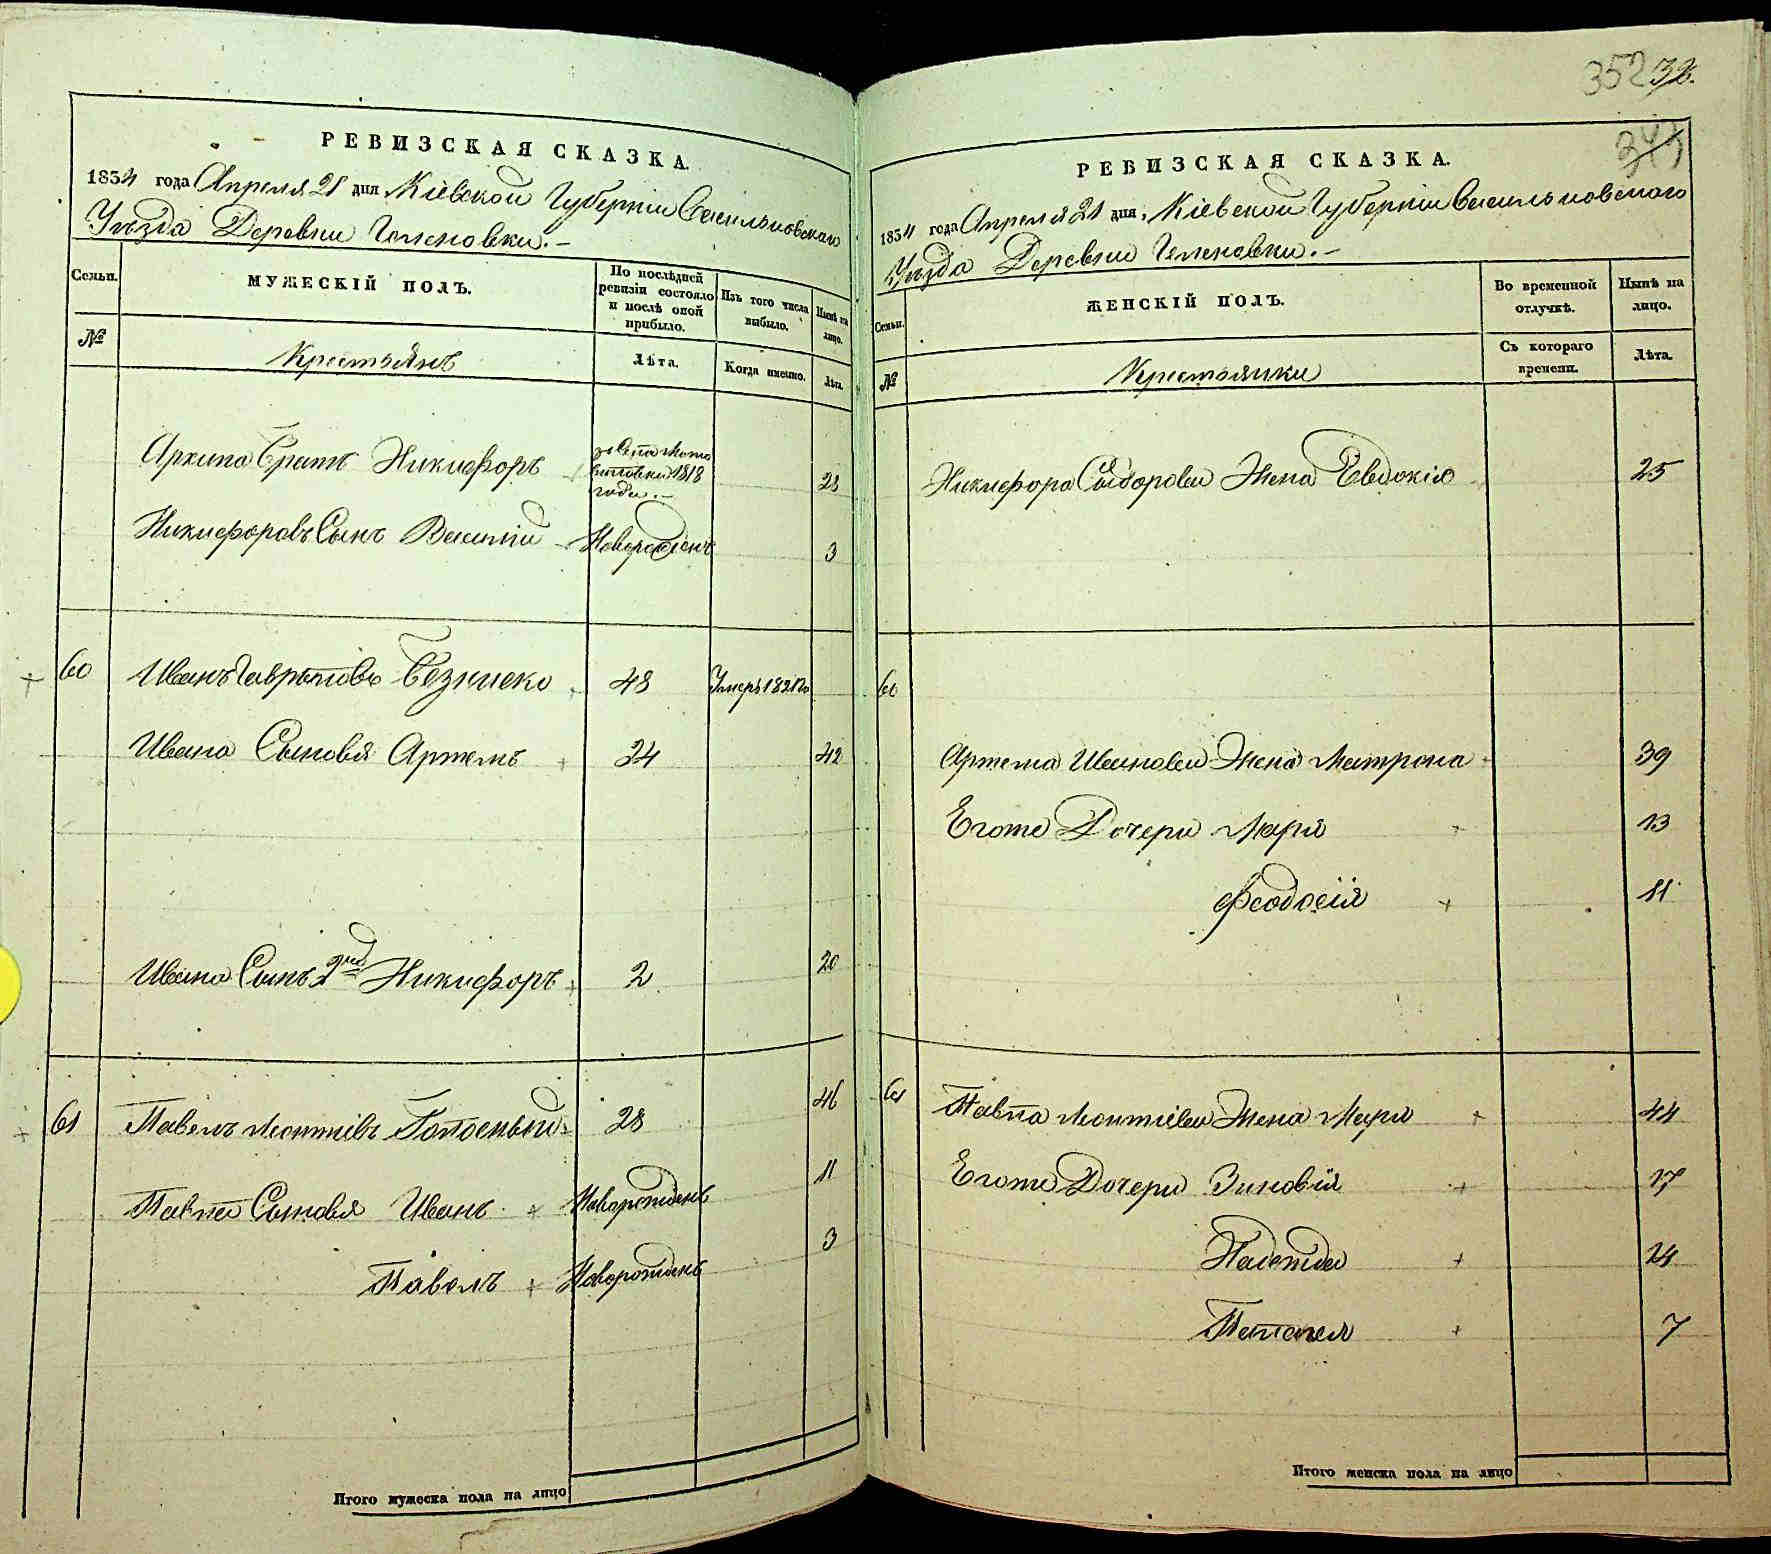 352 32.
РЕВИЗСКАЯ СКАЗКА.
1834 года Апреля 21 дня Кіевской Губерніи Васильковскаго
Уѣзда Деревни
Семьи.
МУЖЕСКІЙ ПОЛЪ.
По послѣдней ревизіи состояло и послѣ оной прибыло.
Изъ того числа выбыло.
Нынѣ на лицо.
№
Крестьянъ
Лѣта.
Когда именно.
Лѣта.
Архипа Братъ Никифоръ 1818 года. 28
Никифоровъ Сынъ Василій Новорожденъ 3
60 Иванъ Гавриловъ 48 Умеръ 1821го
Ивана Сыновья Артемъ 24 42
Ивана Сынъ 2й Никифоръ 2 20
61 Павелъ Леонтіевъ 28 46
Павла Сыновья Иванъ Новорожденъ 11
Павелъ Новорожденъ 3
Итого мужеска пола на лицо
РЕВИЗСКАЯ СКАЗКА.
1834 года Апреля 21 дня, Кіевской Губерніи Васильковскаго
Уѣзда Деревни
Семьи.
ЖЕНСКІЙ ПОЛЪ.
Во временной отлучкѣ.
Нынѣ на лицо.
№
Крестьянки
Съ котораго времени.
Лѣта.
Никифора Жена Евдокія 25
60
Артема Иванова Жена Матрона 39
Егоже Дочери Марія 13
Феодосія 11
61 Павла Леонтіева Жена Марія 44
Егоже Дочери Зиновія 17
Надежда 14
Пелагея 7
Итого женска пола на лицо